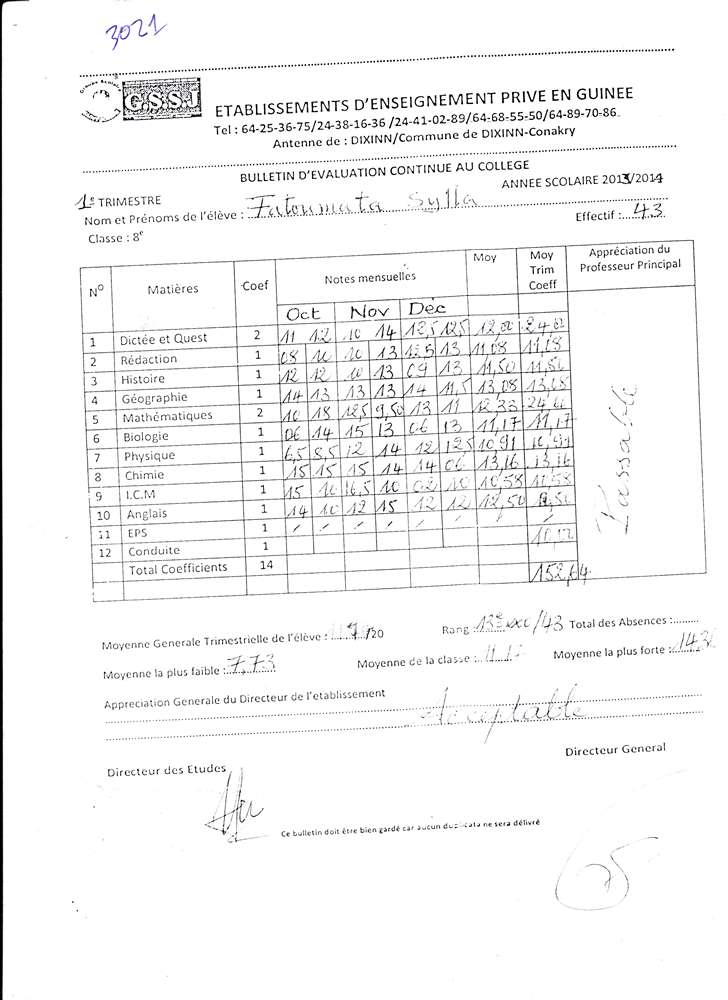 3021
G.S.S.J
ETABLISSEMENTS D'ENSEIGNEMENT PRIVE EN GUINEE
Tel : 64-25-36-75/24-38-16-36 /24-41-02-89/64-68-55-50/64-89-70-86.
Antenne de : DIXINN/Commune de DIXINN-Conakry
BULLETIN D'EVALUATION CONTINUE AU COLLEGE
1e TRIMESTRE ANNEE SCOLAIRE 2013/2014
Nom et Prénoms de l'élève : Fatoumata Sylla Effectif : 43
Classe : 8e
N° Matières Coef Notes mensuelles Moy Moy Trim Coeff Appréciation du Professeur Principal
Oct Nov Déc
1 Dictée et Quest 2 11 12 10 14 12,5 12,5 12,00 24,00
2 Rédaction 1 08 10 10 13 12,5 13 11,08 11,08
3 Histoire 1 12 12 10 13 09 13 11,50 11,50
4 Géographie 1 14 13 13 13 14 11,5 13,08 13,08
5 Mathématiques 2 10 18 12,5 9,50 13 11 12,33
6 Biologie 1 06 14 15 13 06 13 11,17 11,17
7 Physique 1 6,5 8,5 12 14 12 12,5 10,91 10,91
8 Chimie 1 15 15 15 14 14 06 13,16 13,16
9 I.C.M 1 15 10 16,5 10 02 10 10,58 10,58
10 Anglais 1 14 10 12 15 12 12 12,50
11 EPS 1 / / / / / / / /
12 Conduite 1
Total Coefficients 14 152,64
Passable
Moyenne Generale Trimestrielle de l'élève : /20 Rang 13e /43 Total des Absences :
Moyenne la plus faible : 7,73 Moyenne de la classe : Moyenne la plus forte :
Appreciation Generale du Directeur de l'etablissement
Acceptable
Directeur des Etudes Directeur General
Ce bulletin doit être bien gardé car aucun duplicata ne sera délivré